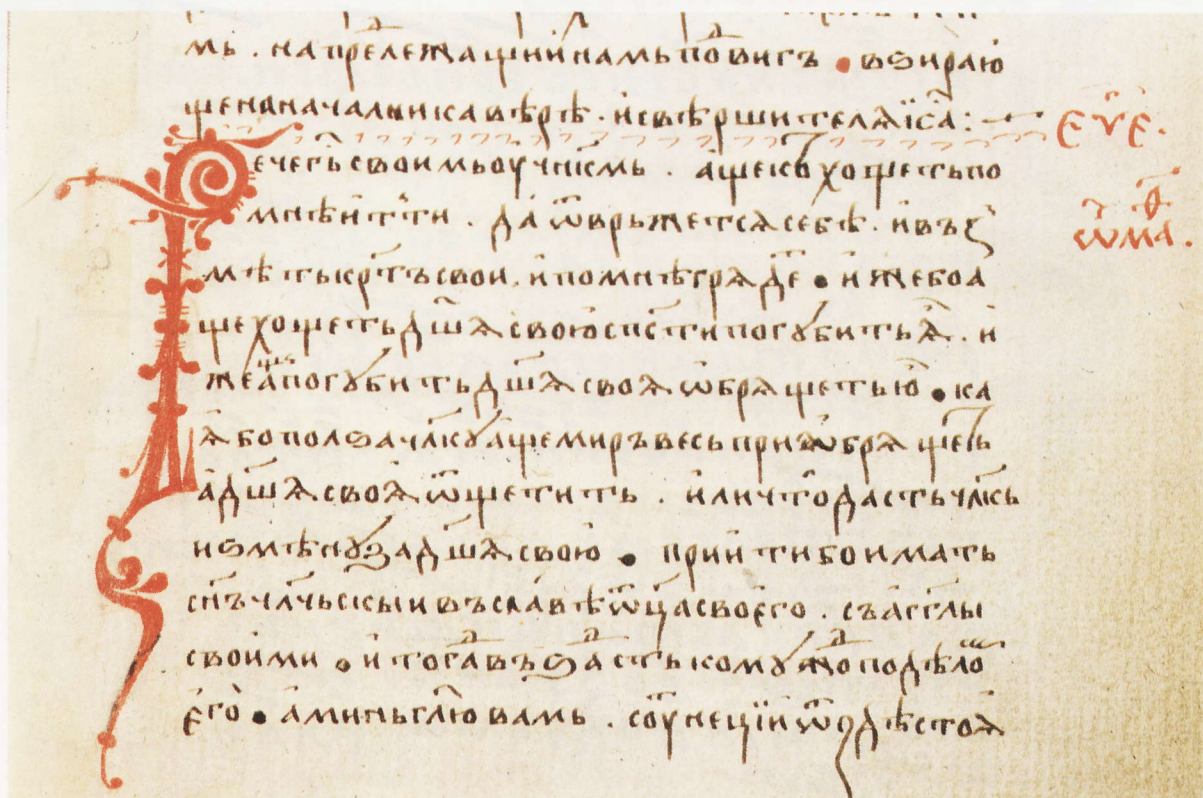 мь . на прѣлежащїй намь по́двигъ . вѕираю
ще на начал҄ника вѣрѣ . и съвѣршителꙗ і҆с҃а : ев҃ѓе .
Рече г҃ь своимь оуч҃нкѡмь . аще кто хощеть по
мнѣ ити . да ѿврьжетсѧ себѣ . и въз ѿ ма҃ѳ .
мѣть кр҃тъ свои . и по мнѣ грѧде . иже бо а
ще хощеть дш҃ѫ свою сп҃сти погꙋбить ѫ . и
же аще погꙋбить дш҃ѫ своѫ ѡбрѧщеть ю . ка
ꙗ бо полѕа чл҃кꙋ аще мирь весь приѡбрѧщеть
а дш҃ѫ своѫ ѿщетить . или что дасть чл҃кь
иѕмѣнꙋ за дш҃ѫ свою . прїити бо имать
сн҃ъ чл҃чьскыи въ славѣ ѿц҃а своего . съ агг҃лы
своими . и тогда въздасть комꙋждо по дѣлѡ
его . аминь гл҃ю вамь . сꙋ҃ нецїи ѿ зде стоѫ